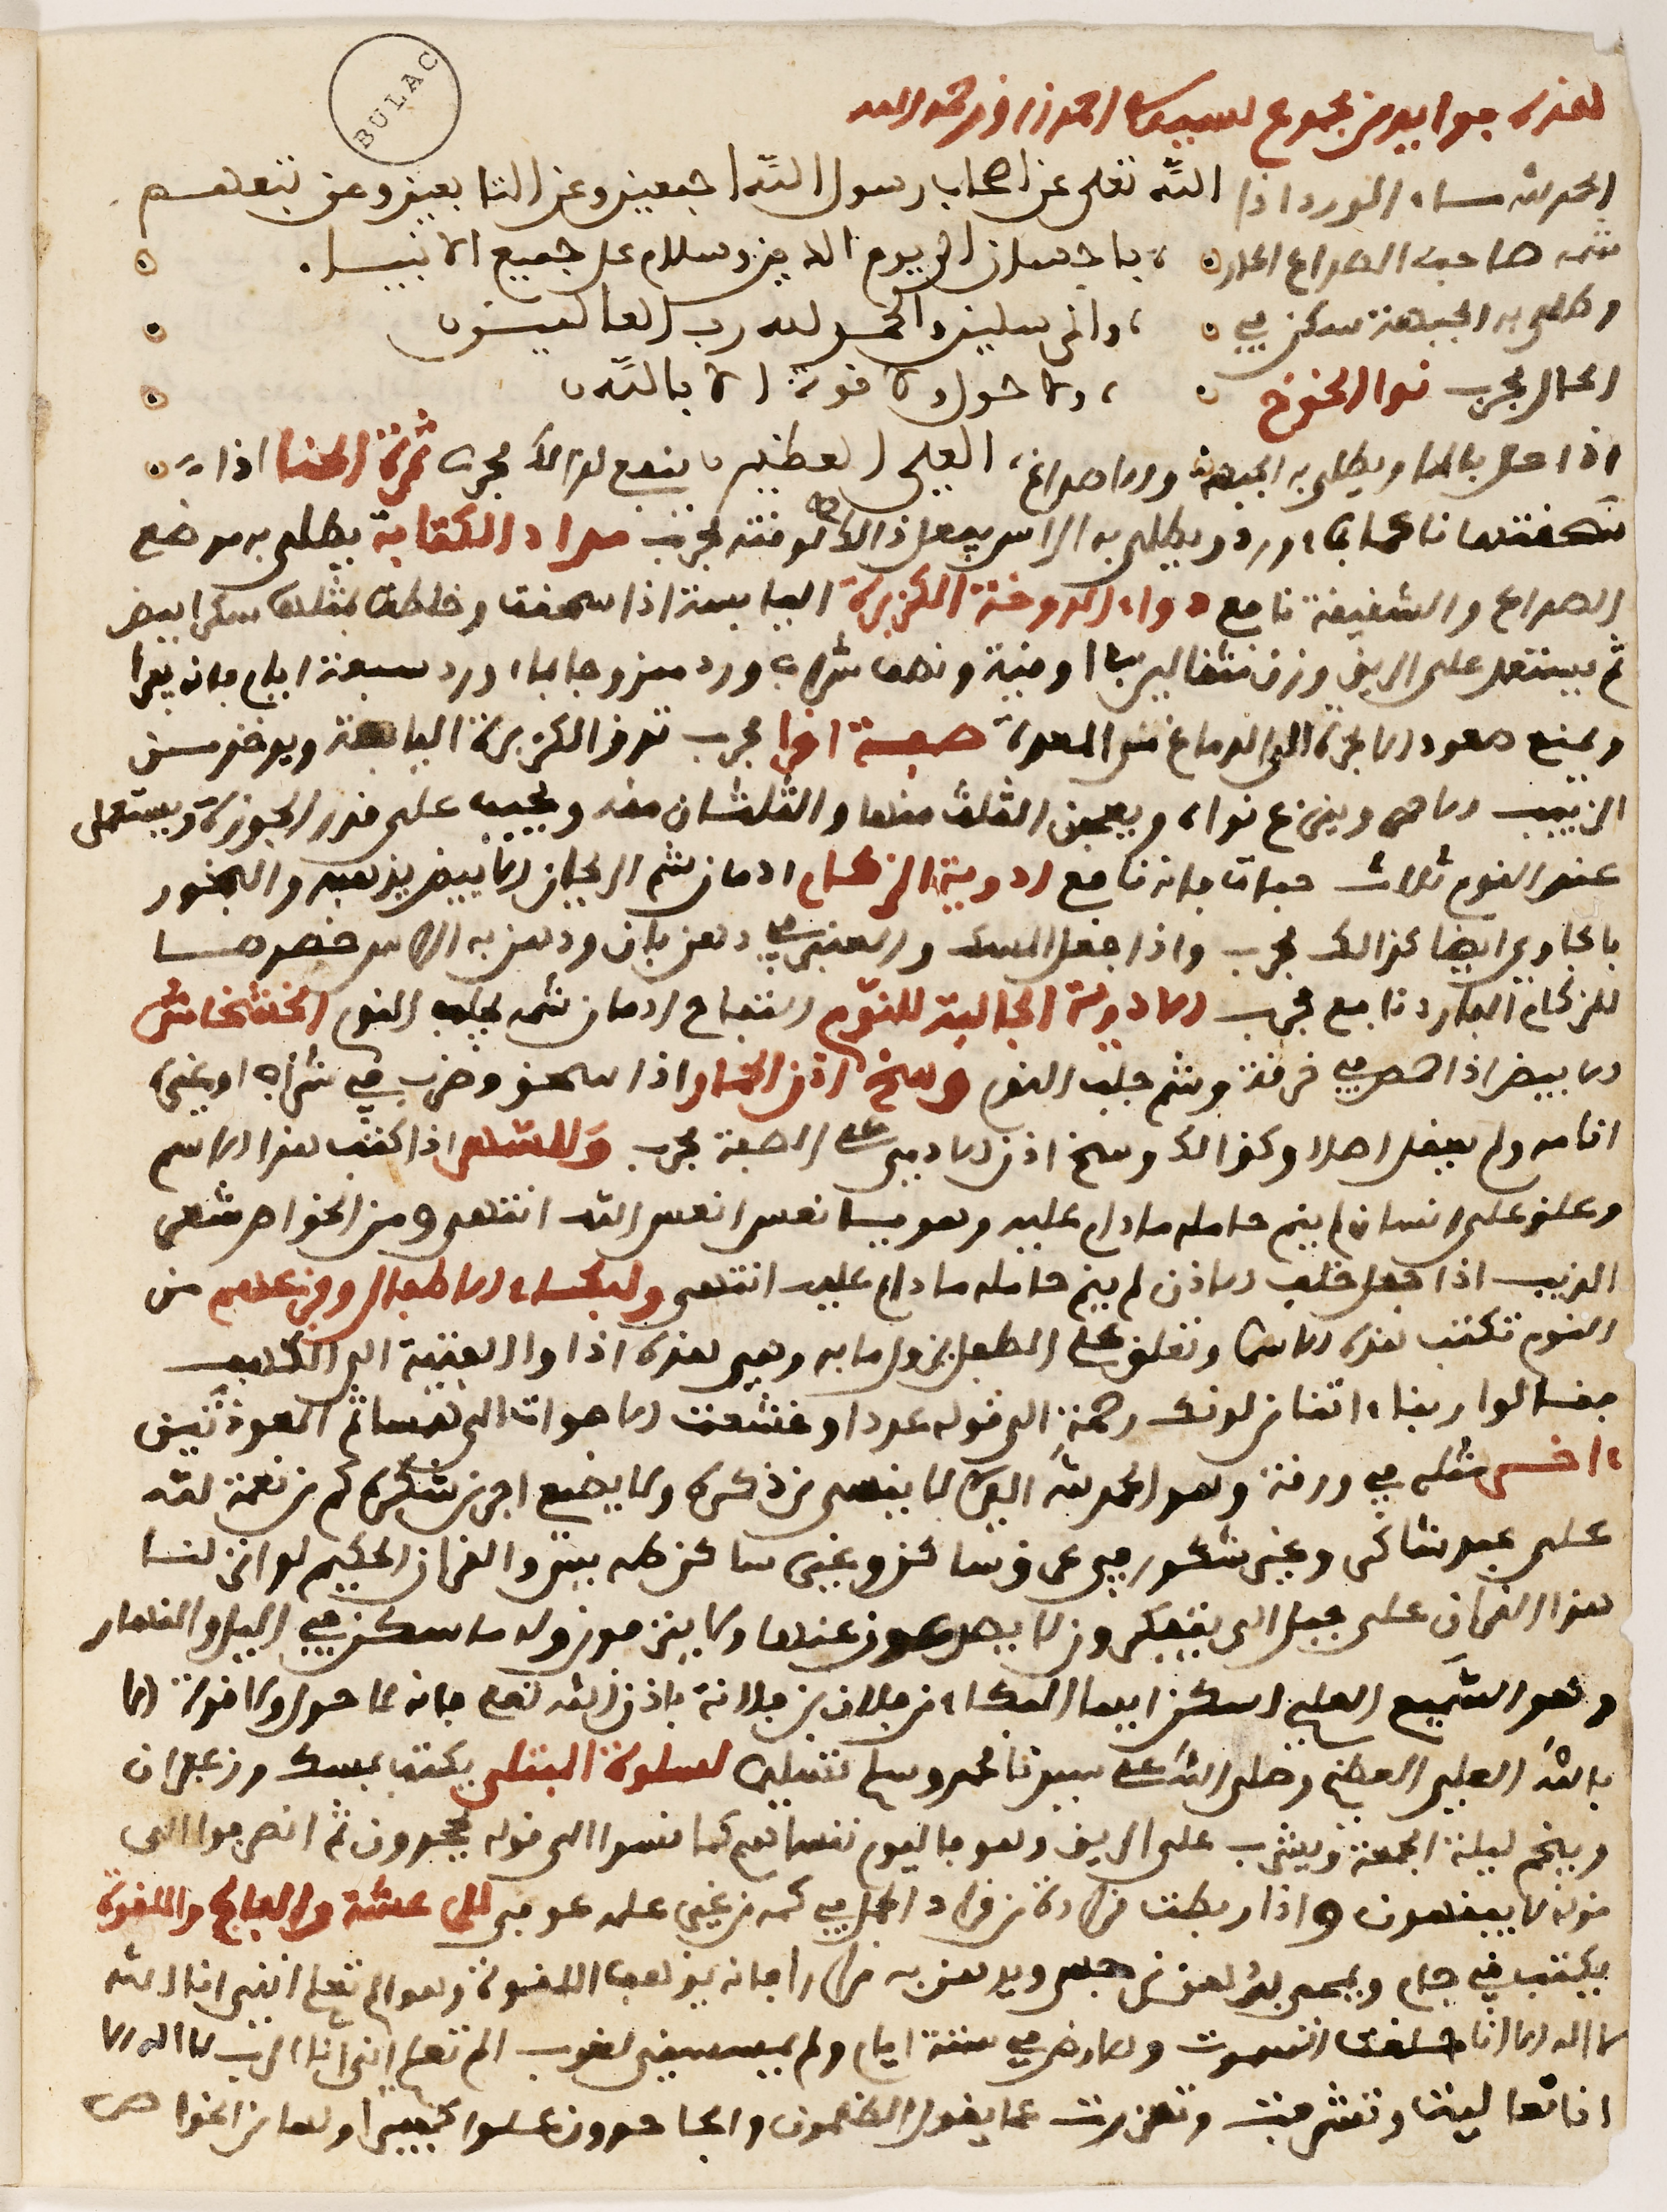 BULAC
هذه فوايد من مجموع لسيدي احمد زروف رحمه الله
الحمد لله ماء الورد اذا الله تعلى عن اصحاب رسول الله اجمعين وعن التابعين وعن تبعهم
شمه صاحب الصداع الحار باحسان الى يوم الدين وسلام على جميع الانبيا
وطلي به الجبهة سكن في والمرسلين والحمد لله رب العالمين
الحال مجرب نوا الخوخ ولا حول ولا قوة الا بالله
اذا حل بالماء ويطلى به الجبهة والاصداغ العلي العظيم ينفع لذالك مجرب ثمرة الحنا اذا
سحفتها ناعما بماء ورد ويطلى به الراس يفعل ذالك لوفته مجرب مداد الكتابة يطلى به موضع
الصداع والشفيفة نافع دواء الدوخة الكزبرة اليابسة اذا سحفت وخلطت بمثلها سكرا ابيض
ثم يستعمل على الريف وزن مثفالين اوفية ونصف شراب ورد ممزوجا بماء ورد سبعة ايام فانه يبرا
ويمنع صعود الابخرة الى الدماغ من المعدة صفة اخرا مجرب تدق الكزبرة اليابسة ويوخذ من
الزبيب الاحمر وينزع نواه ويعجن الثلث منها والثلثان منه ويحبب على فدر الجوزة ويستعمل
عند النوم ثلاث حبات فانه نافع ادوية الزكام ادمان شم الريحان الابيض يذهبه والبخور
بالجاوي ايضا كذالك مجرب واذا جعل المسك والعنبر في دهن بان ودهن به الراس خصوصا
للزكام البارد نافع مجرب الادوية الجالبة للنوم التفاح ادمان شمه يجلب النوم الخشخاش
الابيض اذا صر في خرفة وشم جلب النوم وسخ اذن الحمار اذا سحف وضرب في شراب او غيره
انامه ولم يعفل اصلا وكذالك وسخ اذن الادمي على الصفة مجرب وللسهر اذا كتب هذا الاسم
وعلف على انسان لم ينم حامله ما دام عليه وهو يا نعس انعس الله انتهى ومن الخواص شعر
الذيب اذا جعل خلف الاذن لم ينم حامله ما دام عليه انتهى ولبكاء الاطفال وفزعهم من
النوم تكتب هذه الاسما وتعلف على الطفل يزول ما به وهي هذه اذ اوا الفتية الى الكهف
ففالوا ربنا ءاتنا من لدنك رحمة الى فوله عددا وخشعت الاصوات الى همسا ثم المعوذتين
اخر مثله في ورفة وهو الحمد لله الذي لا ينسى من ذكره ولا يضيع اجر من شكره كم من نعمة لله
على عبد شاكر وغير شكور في عرف ساكن وغير ساكن طه يس والفران الحكيم لو انزلنا
هذا الفران على جبل الى يتفكرون لا يصدعون عنها ولا ينزفون وله ما سكن في اليل والنهار
وهو السميع العليم اسكن ايها البكاء من فلان بن فلانة باذن الله تعلى فانه لا حول ولا قوة الا
بالله العلي العظيم وصلى الله على سيدنا محمد وسلم تسليما لسلوة المبتلى يكتب بمسك وزعفران
وينجم ليلة الجمعة ويشرب على الريف وهو فاليوم ننساهم كما نسوا الى فوله يجحدون ثم انصرفوا الى
فوله لا يففهون واذا ربطت فرادة من فراد الجمل في كمه من غير علمه عوفي للرعشة والفالج واللفوة
يكتب في جام ويمحى بدهن ويدهن به مرارا فانه يذهب اللفوة وهو الم تعلم انني انا الله
لا اله الا انا خلفت السموت والارض في ستة ايام ولم يمسسني لغوب الم تعلم انني انا الرب لا اله الا
انا تعاليت وتشرفت وتعززت عما يفول الظلمون والجاحدون علوا كبيرا ولها من الخواص